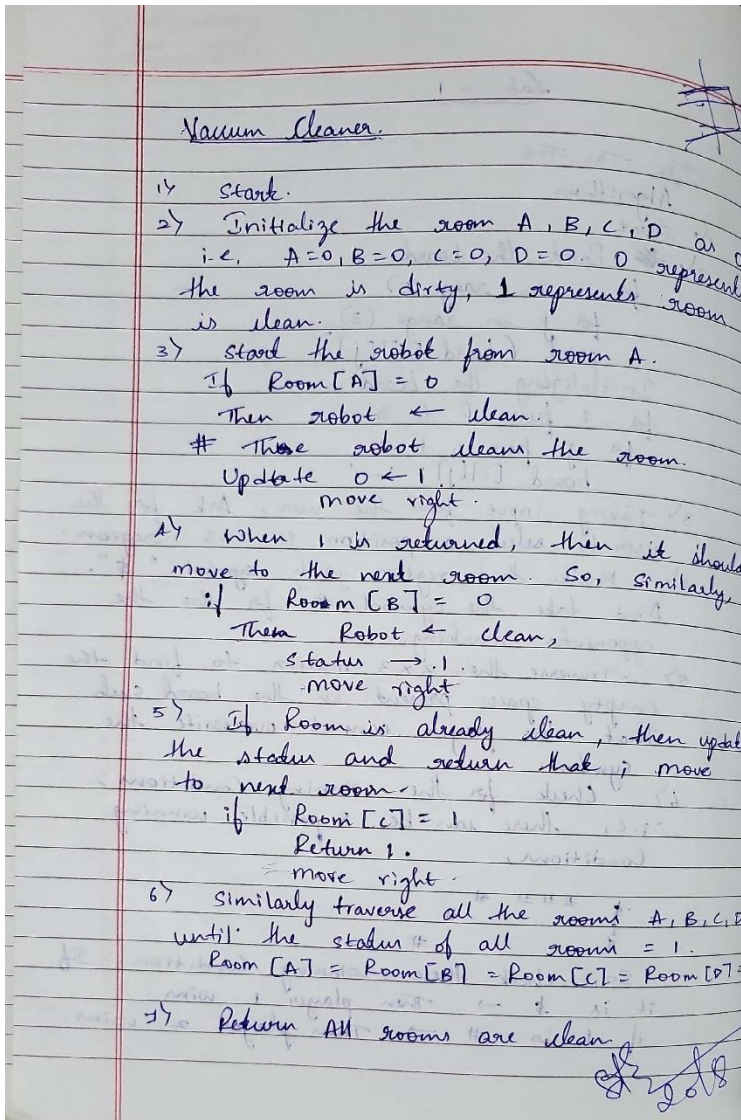 Vacuum Cleaner.
1) Start.
2) Initialize the room A, B, C, D as 0
i.e, A=0, B=0, C=0, D=0. 0 represent
the room is dirty, 1 represents room
is clean.
3) Start the robot from room A.
If Room [A] = 0
Then robot ← clean.
# The robot cleans the room.
Update 0 ← 1.
move right.
4) When 1 is returned, then it should
move to the next room. So, Similarly,
if Room [B] = 0
Then Robot ← clean,
status → 1.
move right
5) If Room is already clean, then updat
the status and return that; move
to next room.
if Room [C] = 1
Return 1.
move right.
6) Similarly traverse all the rooms A, B, C, D
until the status of all rooms = 1.
Room [A] = Room [B] = Room [C] = Room [D] =
7) Return All rooms are clean